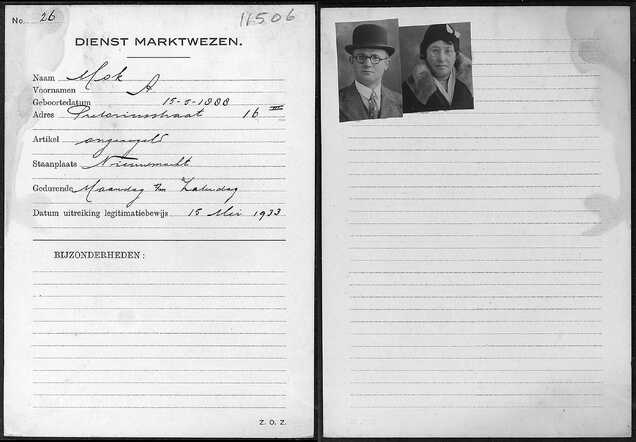 No. 26 11506
DIENST MARKTWEZEN.
Naam Mok
Voornamen A
Geboortedatum 15-5-1888
Adres Pretoriusstraat 16 III
Artikel ongeregeld
Staanplaats Nieuwmarkt
Gedurende Maandag t/m Zaterdag
Datum uitreiking legitimatiebewijs 15 Mei 1933
BIJZONDERHEDEN:
Z. O. Z.